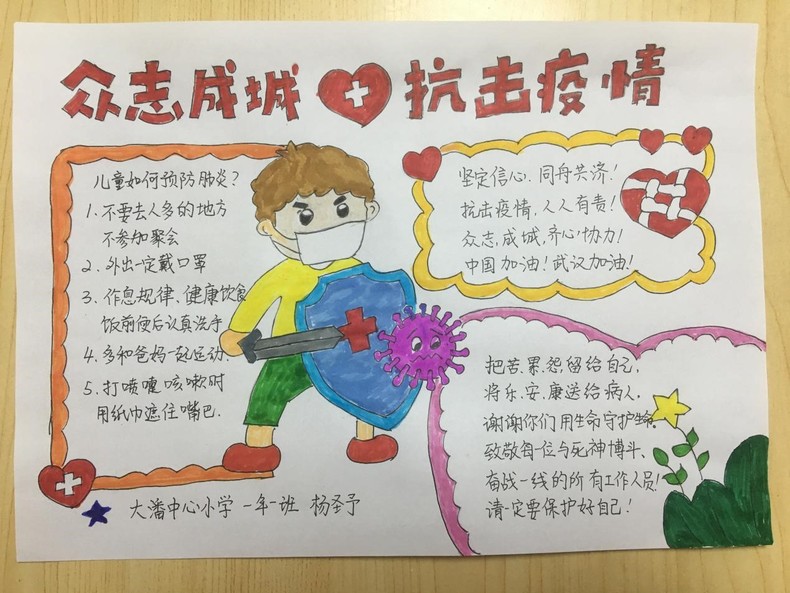 众志成城 抗击疫情
儿童如何预防肺炎？
1. 不要去人多的地方
不参加聚会
2. 外出一定戴口罩
3. 作息规律、健康饮食
饭前便后认真洗手
4. 多和爸妈一起运动
5. 打喷嚏咳嗽时
用纸巾遮住嘴巴.
大潘中心小学 一年一班 杨圣予
坚定信心、同舟共济！
抗击疫情，人人有责！
众志成城，齐心协力！
中国加油！武汉加油！
把苦.累.怨留给自己，
将乐、安、康送给病人.
谢谢你们用生命守护生命.
致敬每一位与死神博斗、
奋战一线的所有工作人员！
请一定要保护好自己！